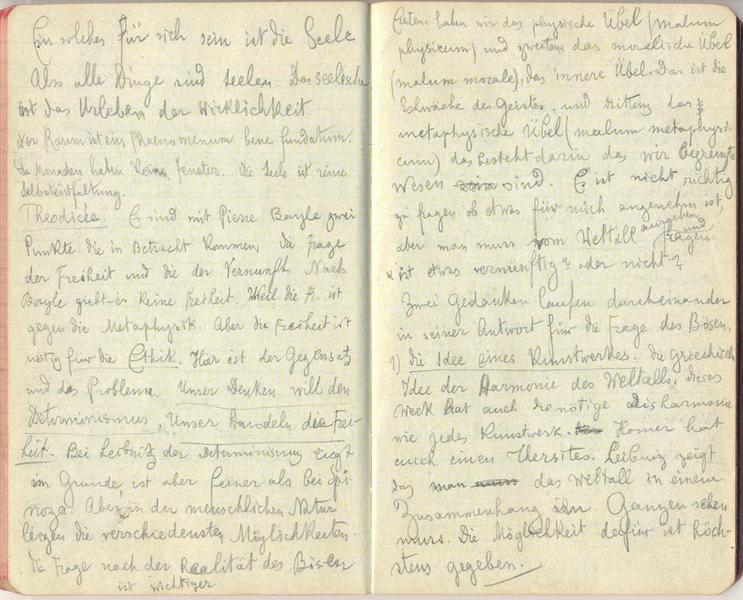 Ein solches für sich sein ist die Seele
Also alle Dinge sind Seelen. Das seelische
ist das Urleben der Wirklichkeit.
Der Raum ist ein Phaenomenum bene fundatum.
Die Monaden haben keine Fenster. Die Seele ist reine
Selbstentfaltung.
Theodicée. Es sind mit Pierre Bayle zwei
Punkte die in Betracht kommen, die Frage
der Freiheit und die der Vernunft. Nach
Bayle giebt er keine Freiheit. Weil die F. ist
gegen die Metaphysik. Aber die Freiheit ist
nötig für die Ethik. Hier ist der Gegensatz
und das Problem. Unser Denken will den
Determinismus, Unser Handeln die Frei-
heit. Bei Leibnitz der Determinismus liegt
im Grunde, ist aber feiner als bei Spi-
noza. Aber in der menschlichen Natur
liegen die verschiedensten Möglichkeiten.
die Frage nach der Realität des Bösen
ist wichtiger
Erstens haben wir das physische Übel (malum
physicum) und zweitens das moralische Übel
(malum morale), das innere Übel. Das ist die
Schwäche des Geistes, und drittens das
metaphysische Übel (malum metaphysi-
cum) das besteht darin das wir begrenzte
Wesen sind. Es ist nicht richtig
zu fragen ob etwas für mich angenehm ist,
aber man muss vom Weltall ausgehen
und fragen:
ist etwas vernünftig? oder nicht?
Zwei Gedanken laufen durcheinander
in seiner Antwort für die Frage des Bösen.
1) die Idee eines Kunstwerkes. die Griechische
Idee der Harmonie des Weltalls, dieses
Werk hat auch die nötige Disharmonie
wie jedes Kunstwerk. Homer hat
auch einen Thersites. Leibniz zeigt
das man das Weltall in einem
Zusammenhang im Ganzen sehen
muss. Die Möglichkeit dafür ist höch-
stens gegeben.